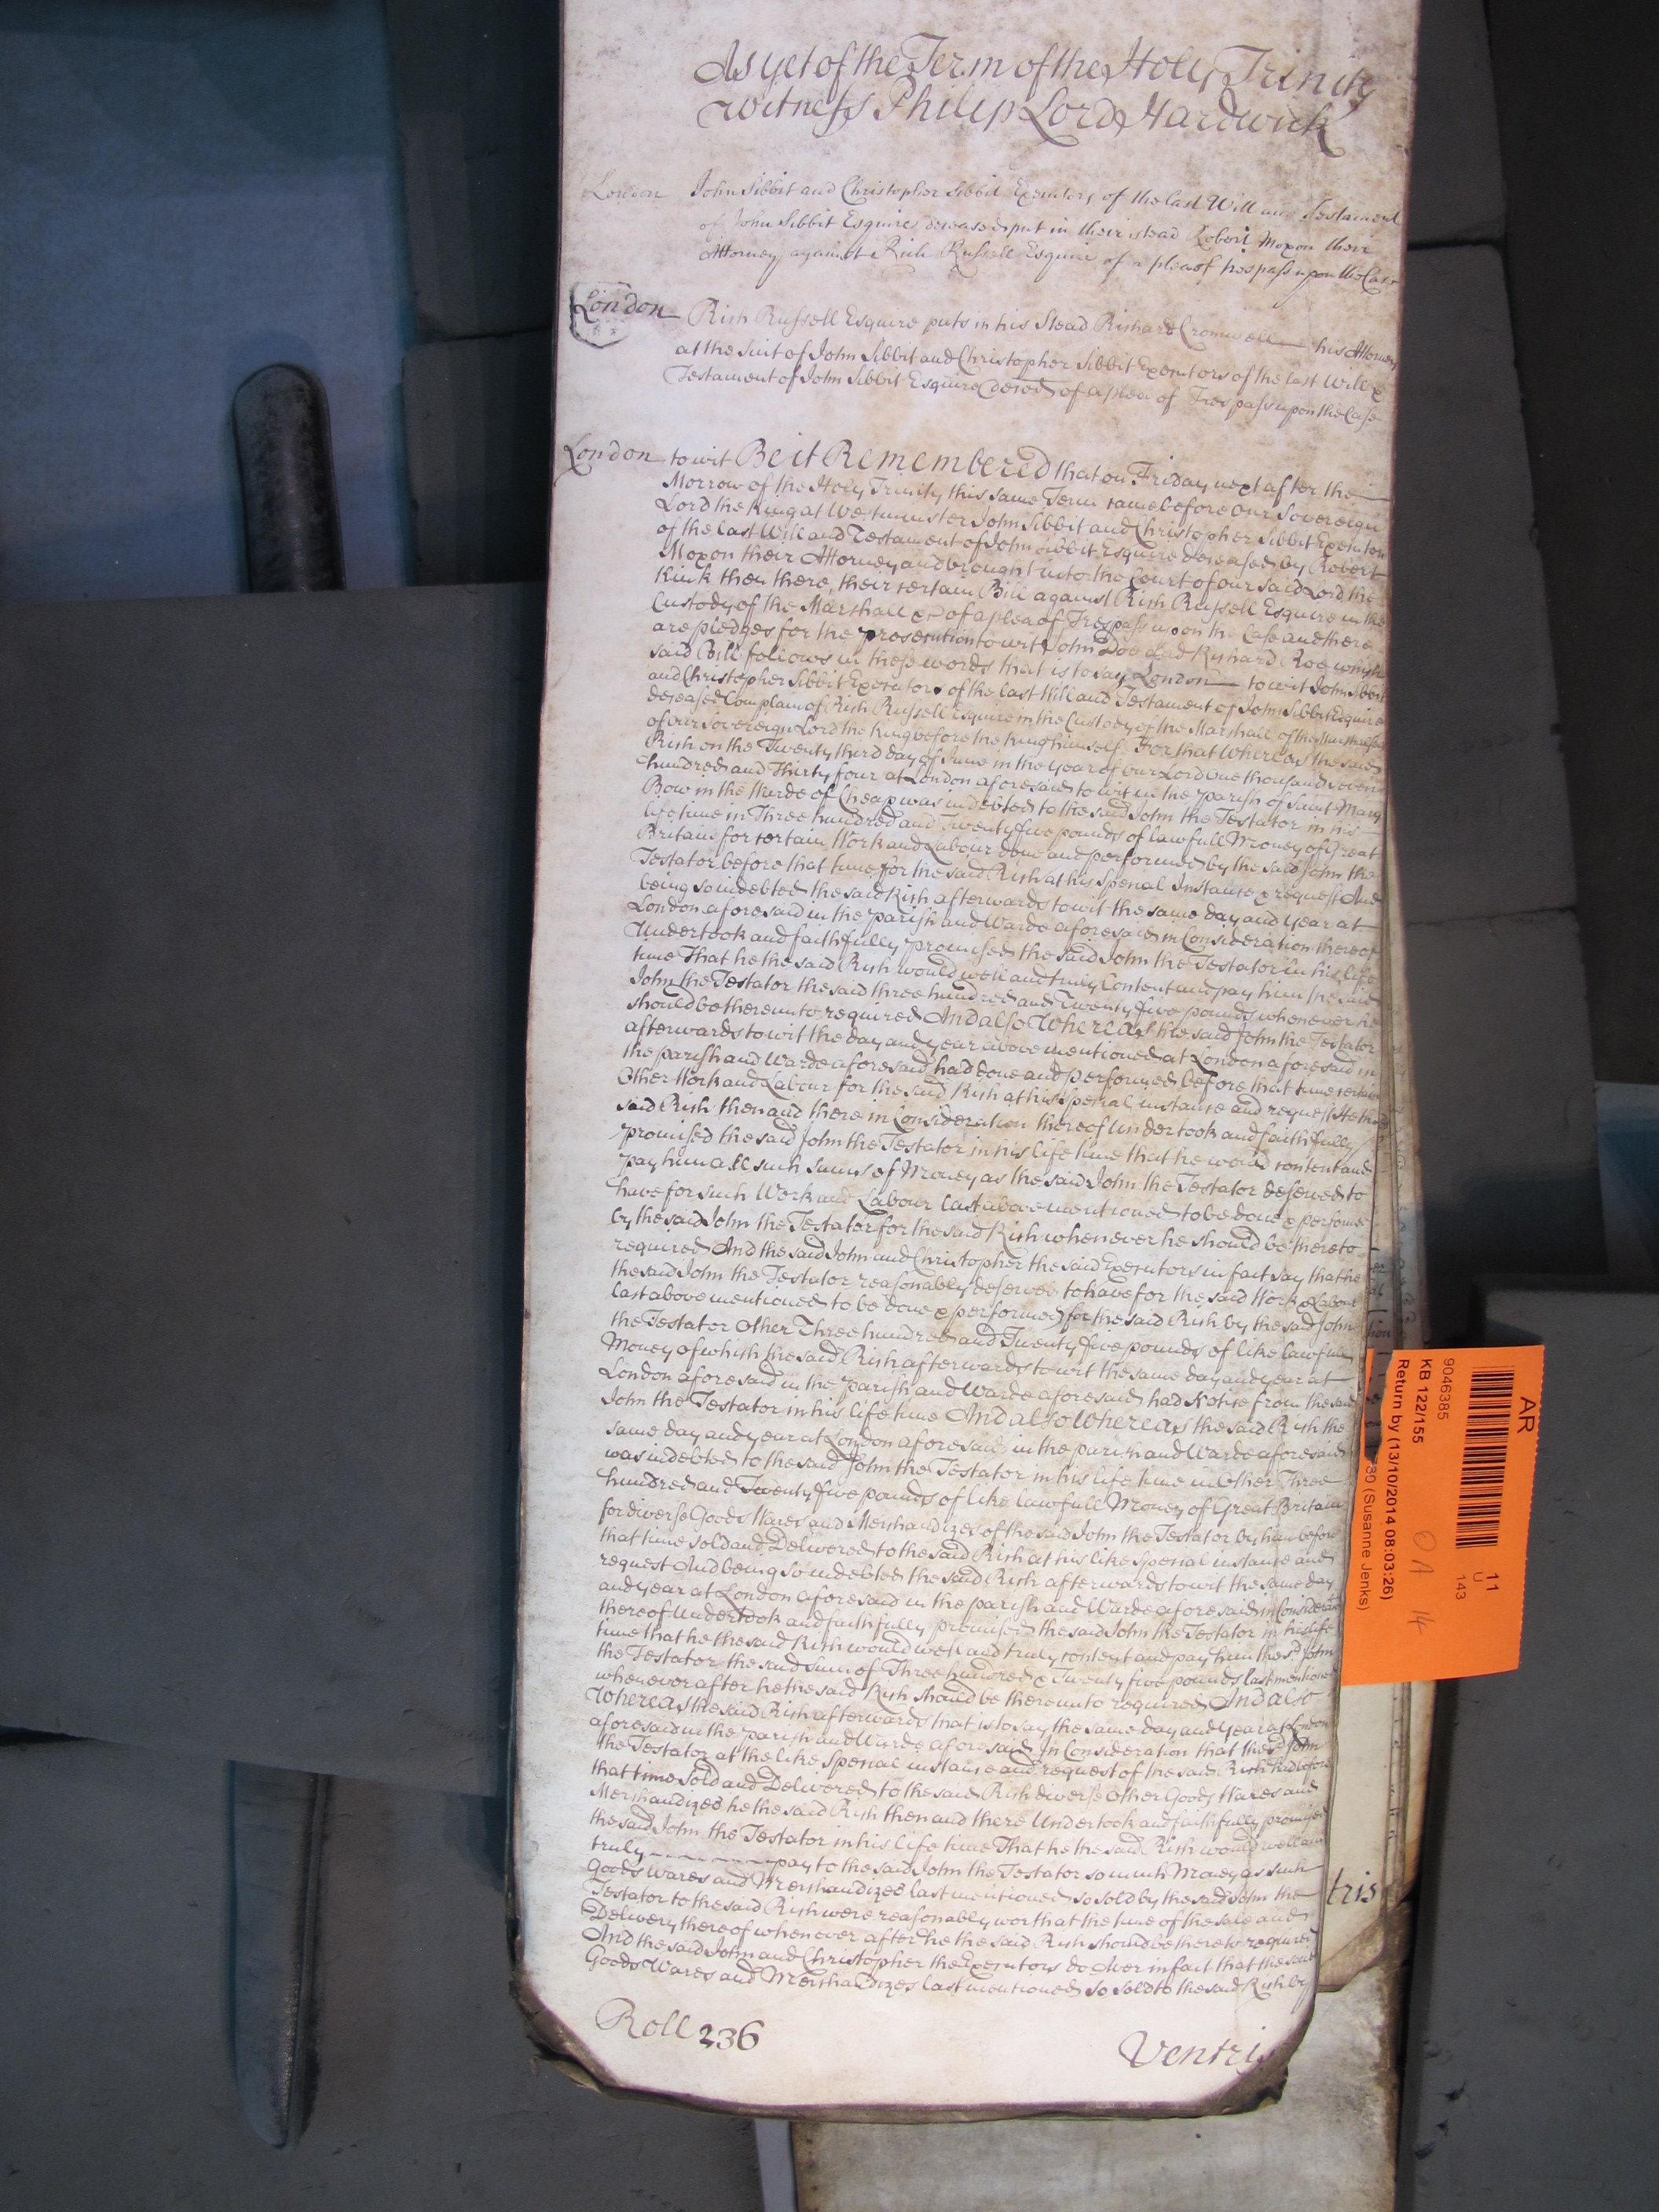 As yet of the Term of the Holy Trinity
witness Philip Lord Hardwick
London John Sibbit and Christopher Sibbit Executors of the last Will and Testament
of John Sibbit Esquire deceased put in their stead Robert Moxon their
Attorney against Rich Russell Esquire of a plea of trespass upon the Case
London Rich Russell Esquire puts in his Stead Richard Cromwell his Attorney
at the suit of John Sibbit and Christopher Sibbit Executors of the last Will &
Testament of John Sibbit Esquire Deced of a plea of Trespass upon the Case
London to wit Be it Remembered that on Friday next after the
Morrow of the Holy Trinity this same Term came before our Sovereign
Lord the King at Westminster John Sibbit and Christopher Sibbit Executors
of the last Will and Testament of John Sibbit Esquire deceased by Robert
Moxon their Attorney and brought into the Court of our said Lord the
King then there, their certain Bill against Rich Russell Esquire in the
Custody of the Marshall &c of a plea of Trespass upon the Case and there
are pledges for the prosecution to wit John Doe and Richard Roe which
said Bill follows in these words that is to say London to wit John Sibbit
and Christopher Sibbit Executors of the last Will and Testament of John Sibbit Esquire
deceased Complain of Rich Russell Esquire in the Custody of the Marshall of the Marshalsea
of our Sovereign Lord the King before the King himself For that Whereas the said
Rich on the Twenty third day of June in the Year of our Lord One thousand seven
hundred and Thirty four at London aforesaid to wit in the parish of Saint Mary
Bow in the Warde of Cheap was indebted to the said John the Testator in his
life time in Three hundred and Twenty five pounds of lawfull Money of Great
Britain for certain Work and Labour done and performed by the said John the
Testator before that time for the said Rich at his Special Instance & request And
being so indebted the said Rich afterwards to wit the same day and year at
London aforesaid in the parish and Warde aforesaid in Consideration thereof
Undertook and faithfully promised the said John the Testator in his life
time That he the said Rich would well and truly Content and pay him the said
John the Testator the said three hundred and Twenty five pounds whenever he
should be thereunto required And also Whereas the said John the Testator
afterwards to wit the day and year above mentioned at London aforesaid in
the parish and Warde aforesaid had done and performed before that time certain
Other Work and Labour for the said Rich at his Special instance and request He the
said Rich then and there in Consideration thereof Undertook and faithfully
promised the said John the Testator in his life time that he would content and
pay him all such Sums of Money as the said John the Testator deserved to
have for such Work and Labour last above mentioned to be done & performed
by the said John the Testator for the said Rich whenever he should be thereto
required And the said John and Christopher the said Executors in fact say that he
the said John the Testator reasonably deserved to have for the said Work & Labour
last above mentioned to be done & performed for the said Rich by the said John
the Testator Other Three hundred and Twenty five pounds of like lawfull
Money of which the said Rich afterwards to wit the same day and year at
London aforesaid in the parish and Warde aforesaid had Notice from the said
John the Testator in his life time And also Whereas the said Rich the
same day and year at London aforesaid in the parish and Warde aforesaid
was indebted to the said John the Testator in his life time in Other Three
hundred and Twenty five pounds of like lawfull Money of Great Britain
for diverse Goods Wares and Merchandizes of the said John the Testator by him before
that time sold and Delivered to the said Rich at his like special instance and
request And being so indebted the said Rich afterwards to wit the same day
and year at London aforesaid in the parish and Warde aforesaid in Consideration
thereof Undertook and faithfully promised the said John the Testator in his life
time that he the said Rich would well and truly content and pay him the sd. John
the Testator the said sum of Three hundred & Twenty five pounds last mentioned
whenever after he the said Rich should be thereunto required And also
Whereas the said Rich afterwards that is to say the same day and year at London
aforesaid in the parish and Warde aforesaid In Consideration that the sd. John
the Testator at the like Special instance and request of the said Rich had before
that time sold and Delivered to the said Rich diverse Other Goods Wares and
Merchandizes he the said Rich then and there Undertook and faithfully promised
the said John the Testator in his life time That he the said Rich would well and
truly pay to the said John the Testator so much Money as such
Goods Wares and Merchandizes last mentioned so sold by the said John the
Testator to the said Rich were reasonably worth at the time of the sale and
Delivery thereof whenever after he the said Rich should be thereto required
And the said John and Christopher the Executors do Aver in fact that the said
Goods Wares and Merchandizes last mentioned so sold to the said Rich by
Roll 236
Ventris
tris
AR
11
U
143
9046385
KB 122/155
Return by (13/10/2014 08:03:26)
30 (Susanne Jenks)
OA 14